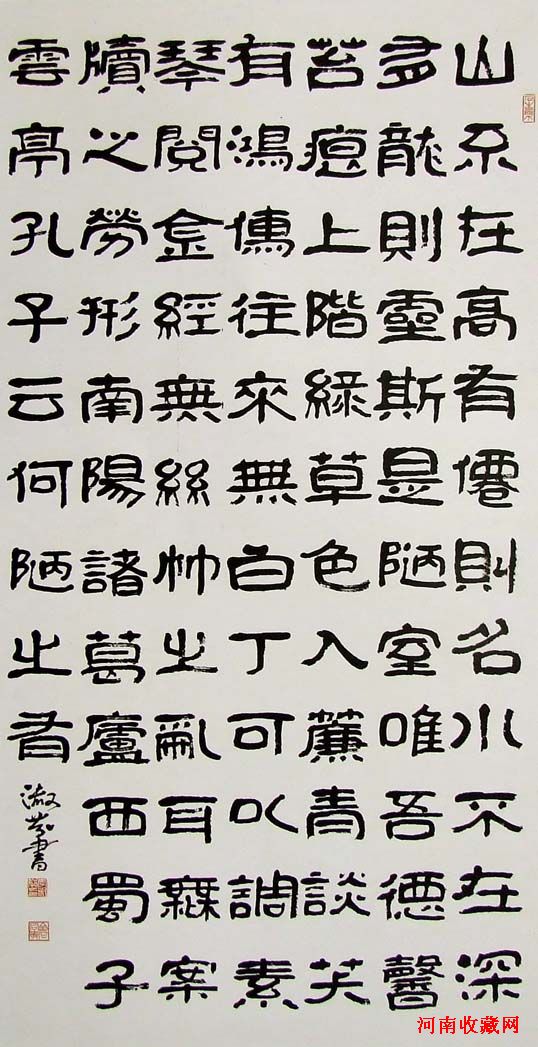 山不在高有僊則名水不在深
有龍則靈斯是陋室唯吾德馨
苔痕上階綠草色入簾青談笑
有鴻儒往來無白丁可以調素
琴閱金經無絲竹之亂耳無案
牘之勞形南陽諸葛廬西蜀子
雲亭孔子云何陋之有
淑芬書
河南收藏网